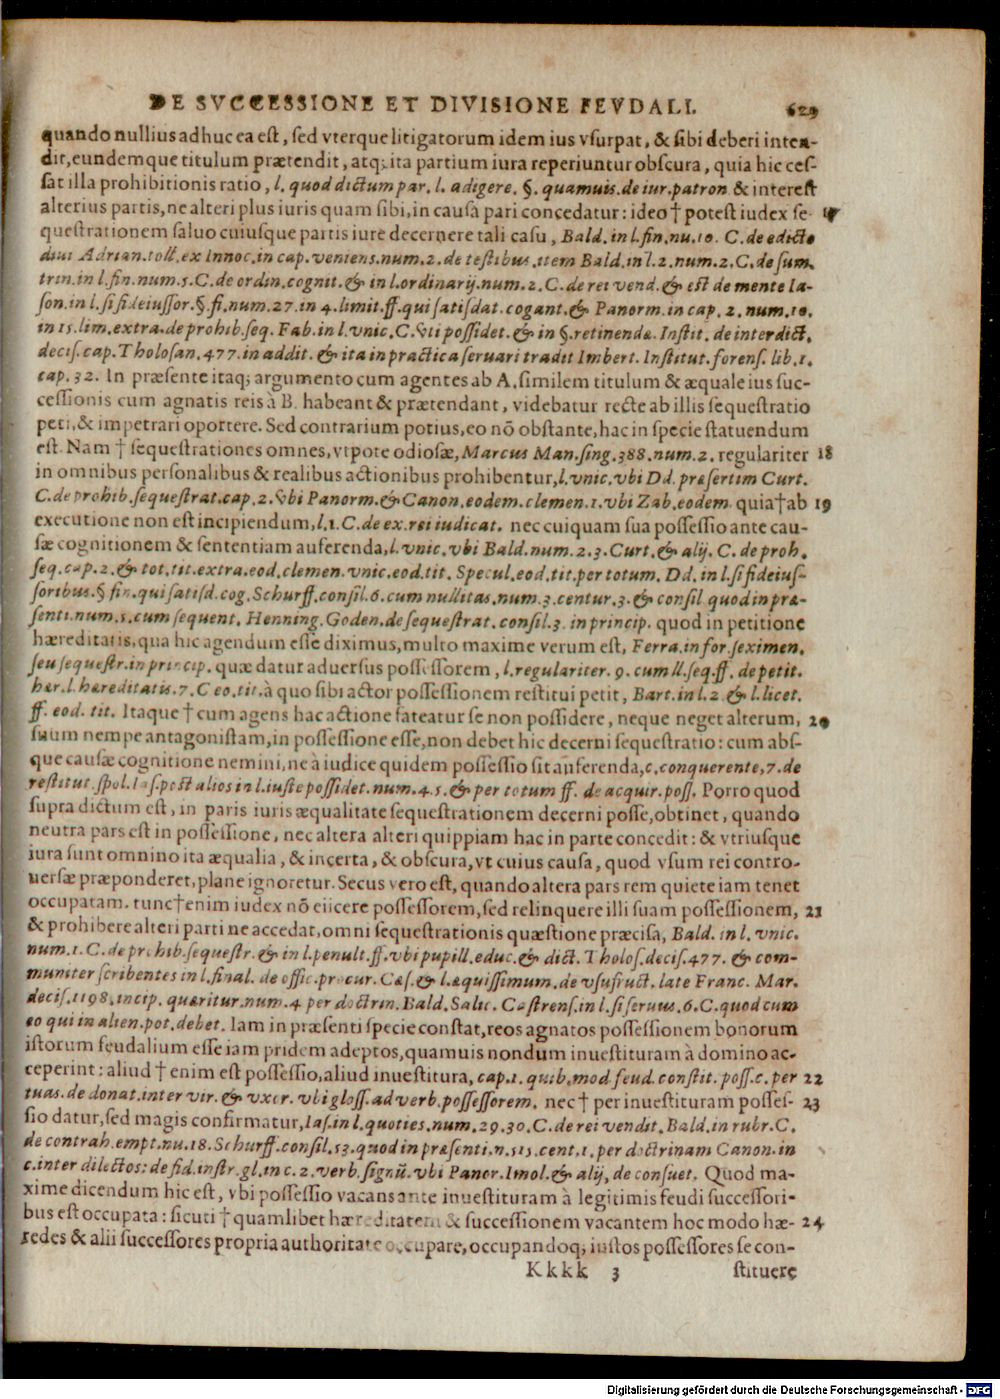 DE SVCCESSIONE ET DIVISIONE FEVDALI. 629
quando nullius adhuc ea est, sed vterque litigatorum idem ius vsurpat, & sibi deberi inten-
dit, eundemque titulum prætendit, atq; ita partium iura reperiuntur obscura, quia hic ces-
sat illa prohibitionis ratio, l. quod dictum par. l. adigere. §. quamuis. de iur. patron & interest
alterius partis, ne alteri plus iuris quam sibi, in causa pari concedatur: ideo † potest iudex se- 17
questrationem saluo cuiusque partis iure decernere tali casu, Bald. in l. fin. nu. 10. C. de edicto
diui Adrian. toll. ex Innoc. in cap. veniens. num. 2. de testibus. item Bald. in l. 2. num. 2. C. de sum.
trin. in l. fin. num. 5. C. de ordin. cognit. & in l. ordinarij. num. 2. C. de rei vend. & est de mente Ia-
son. in l. si fideiussor. §. fi. num. 27. in 4. limit. ff. qui satisdat. cogant. & Panorm. in cap. 2. num. 10.
in 15. lim. extra. de prohib. seq. Fab. in l. vnic. C. vti possidet. & in §. retinendæ. Instit. de interdict.
decis. cap. Tholosan. 477. in addit. & ita in practica seruari tradit Imbert. Institut. forens. lib. 1.
cap. 32. In præsente itaq; argumento cum agentes ab A. similem titulum & æquale ius suc-
cessionis cum agnatis reis à B. habeant & prætendant, videbatur recte ab illis sequestratio
peti, & impetrari oportere. Sed contrarium potius, eo nō obstante, hac in specie statuendum
est. Nam † sequestrationes omnes, vtpote odiosæ, Marcus Man. sing. 388. num. 2. regulariter 18
in omnibus personalibus & realibus actionibus prohibentur, l. vnic. vbi Dd. præsertim Curt.
C. de prohib. sequestrat. cap. 2. vbi Panorm. & Canon. eodem. clemen. 1. vbi Zab. eodem. quia † ab 19
executione non est incipiendum, l. 1. C. de ex. rei iudicat. nec cuiquam sua possessio ante cau-
sæ cognitionem & sententiam auferenda, l. vnic. vbi Bald. num. 2. 3. Curt. & alij. C. de proh.
seq. cap. 2. & tot. tit. extra. eod. clemen. vnic. eod. tit. Specul. eod. tit. per totum. Dd. in l. si fideius-
soribus. § fin. qui satisd. cog. Schurff. consil. 6. cum nullitas. num. 3. centur. 3. & consil quod in præ-
senti. num. 5. cum sequent. Henning. Goden. de sequestrat. consil. 3. in princip. quod in petitione
hæreditatis, qua hic agendum esse diximus, multo maxime verum est, Ferra. in for. seximen.
seu sequestr. in princip. quæ datur aduersus possessorem, l. regulariter. 9. cum ll. seq. ff. de petit.
hær. l. hæreditatis. 7. C eo. tit. à quo sibi actor possessionem restitui petit, Bart. in l. 2. & l. licet.
ff. eod. tit. Itaque † cum agens hac actione fateatur se non possidere, neque neget alterum, 20
suum nempe antagonistam, in possessione esse, non debet hic decerni sequestratio: cum abs-
que causæ cognitione nemini, ne à iudice quidem possessio sit auferenda, c. conquerente, 7. de
restitut. spol. Ias. post alios in l. iuste possidet. num. 4. 5. & per totum ff. de acquir. poss. Porro quod
supra dictum est, in paris iuris æqualitate sequestrationem decerni posse, obtinet, quando
neutra pars est in possessione, nec altera alteri quippiam hac in parte concedit: & vtriusque
iura sunt omnino ita æqualia, & incerta, & obscura, vt cuius causa, quod vsum rei contro-
uersæ præponderet, plane ignoretur. Secus vero est, quando altera pars rem quiete iam tenet
occupatam. tunc † enim iudex nō eiicere possessorem, sed relinquere illi suam possessionem, 21
& prohibere alteri parti ne accedat, omni sequestrationis quæstione præcisa, Bald. in l. vnic.
num. 1. C. de prohib. sequestr. & in l. penult. ff. vbi pupill. educ. & dict. Tholos. decis. 477. & com-
muniter scribentes in l. final. de offic. procur. Cæs. & l. æquissimum. de vsufruct. late Franc. Mar.
decis. 1198. incip. quæritur. num. 4 per doctrin. Bald. Salic. Castrens. in l. si seruus. 6. C. quod cum
eo qui in alien. pot. debet. Iam in præsenti specie constat, reos agnatos possessionem bonorum
istorum feudalium esse iam pridem adeptos, quamuis nondum inuestituram à domino ac-
ceperint: aliud † enim est possessio, aliud inuestitura, cap. 1. quib. mod. feud. constit. poss. c. per 22
tuas. de donat. inter vir. & vxor. vbi gloss. ad verb. possessorem. nec † per inuestituram posses- 23
sio datur, sed magis confirmatur, Ias. in l. quoties. num. 29. 30. C. de rei vendit. Bald. in rubr. C.
de contrah. empt. nu. 18. Schurff. consil. 53. quod in præsenti. n. 515. cent. 1. per doctrinam Canon. in
c. inter dilectos: de fid. instr. gl. in c. 2. verb. signū. vbi Panor. Imol. & alij, de consuet. Quod ma-
xime dicendum hic est, vbi possessio vacans ante inuestituram à legitimis feudi successori-
bus est occupata: sicuti † quamlibet hæreditatem & successionem vacantem hoc modo hæ- 24
redes & alii successores propria authoritate occupare, occupandoq; iustos possessores se con-
Kkkk 3 stituere
Digitalisierung gefördert durch die Deutsche Forschungsgemeinschaft - DFG